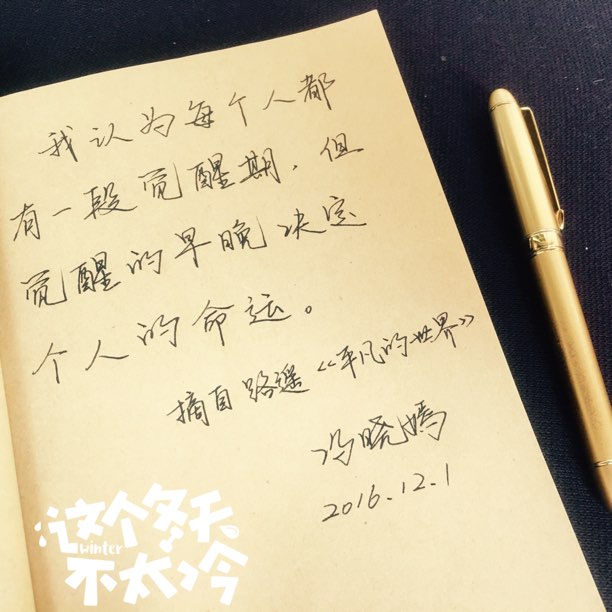 我认为每个人都
有一段觉醒期，但
觉醒的早晚决定
个人的命运。
摘自路遥《平凡的世界》
冯晓嫣
2016.12.1
这个冬天
winter
不太冷